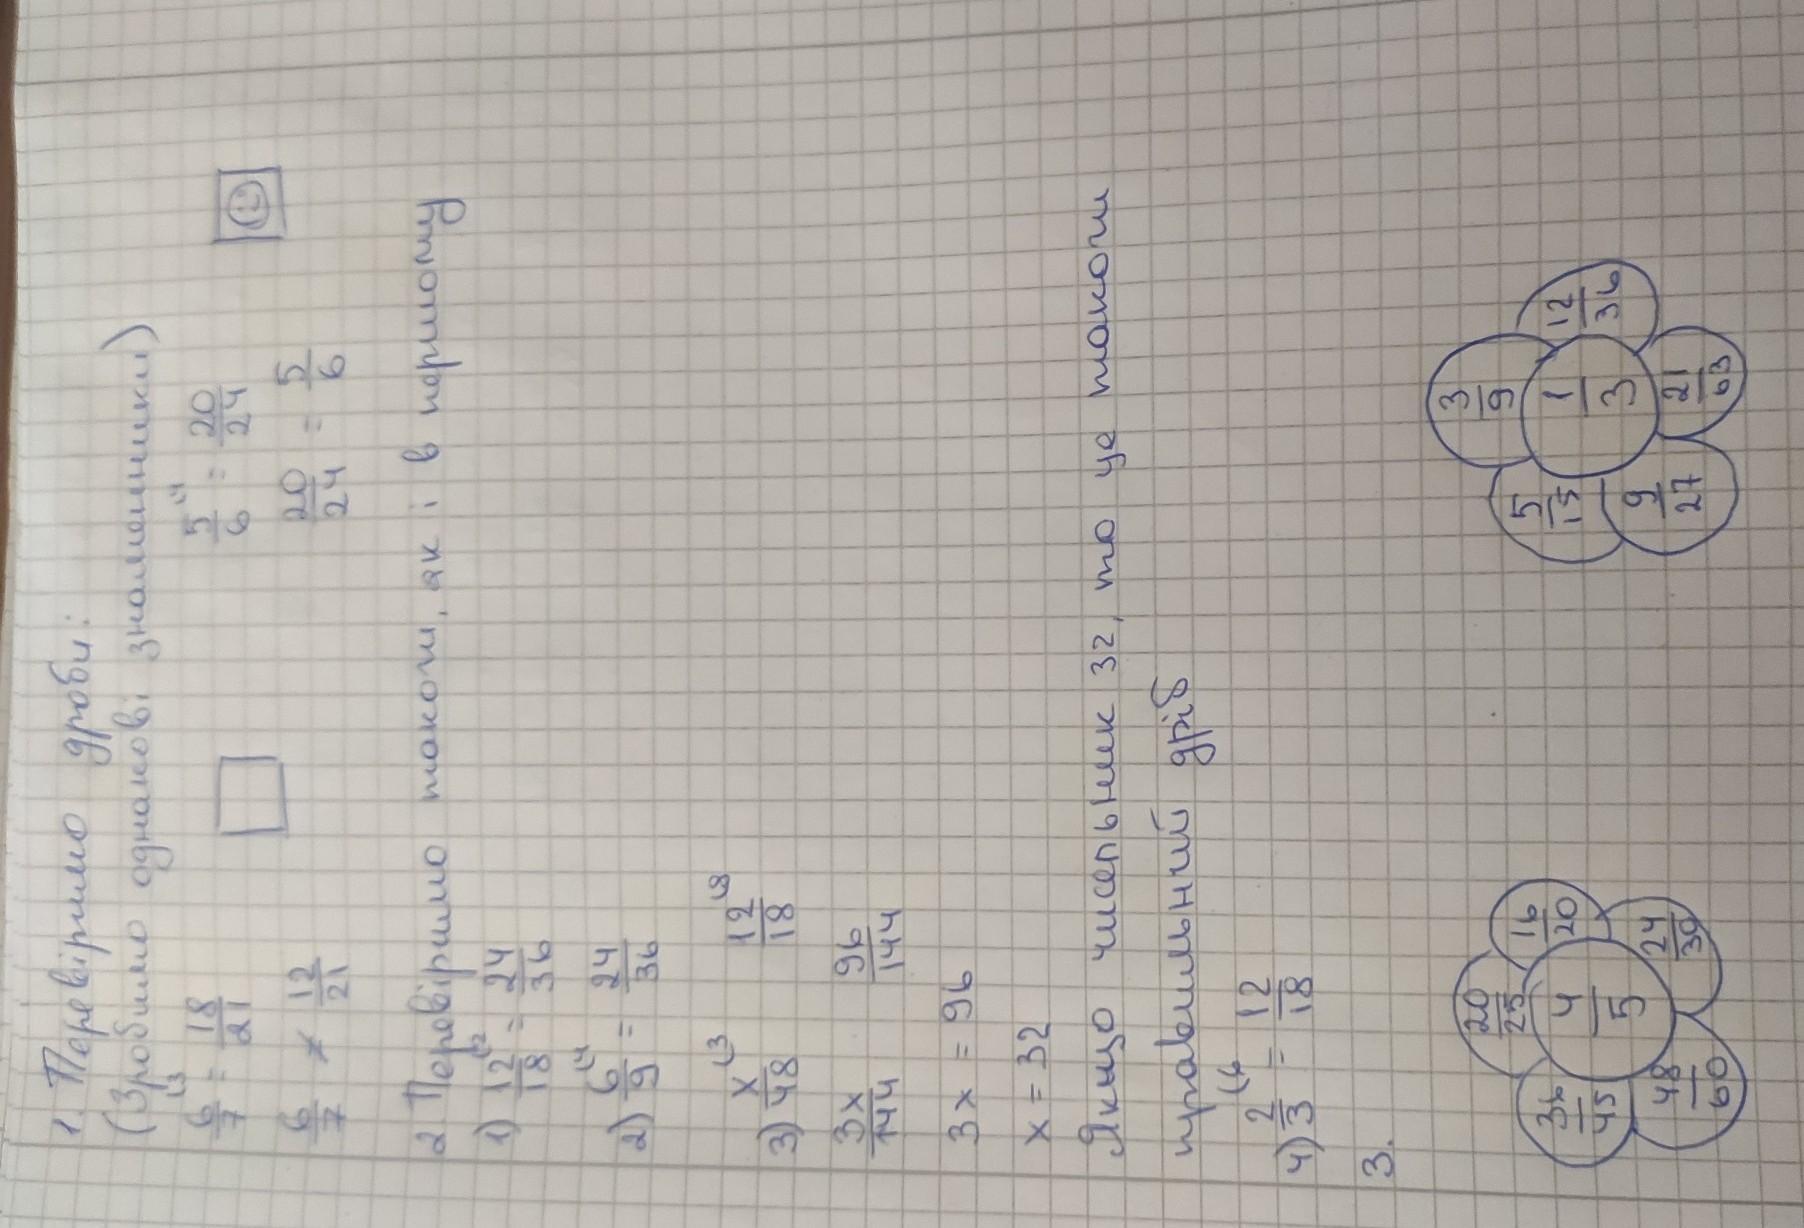 1. Перевіримо дроби:
(Зробимо однакові знаменники)
6/7 ⁽³ = 18/21    5/6 ⁽⁴ = 20/24
6/7 ≠ 12/21    20/24 = 5/6
2 Перевіримо також, як і в першому
1) 12/18 ⁽² = 24/36
2) 6/9 ⁽⁴ = 24/36
3) x/48 ⁽³    12/18 ⁽⁸
3x/144    96/144
3x = 96
x = 32
Якщо чисельник 32, то це також
правильний дріб
4) 2/3 ⁽⁶ = 12/18
3.
20/25    3/9
36/45  4/5  16/20    5/15  1/3  12/36
48/60    24/30    9/27    21/63